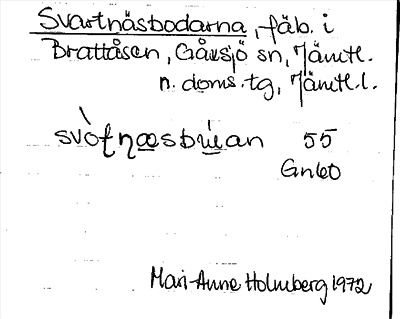 Svartnäsbodarna, fäb. i
Brattåsen, Gåxsjö sn, Jämtl.
n. doms.tg, Jämtl.l.
55
Gn60
Mari-Anne Holmberg 1972